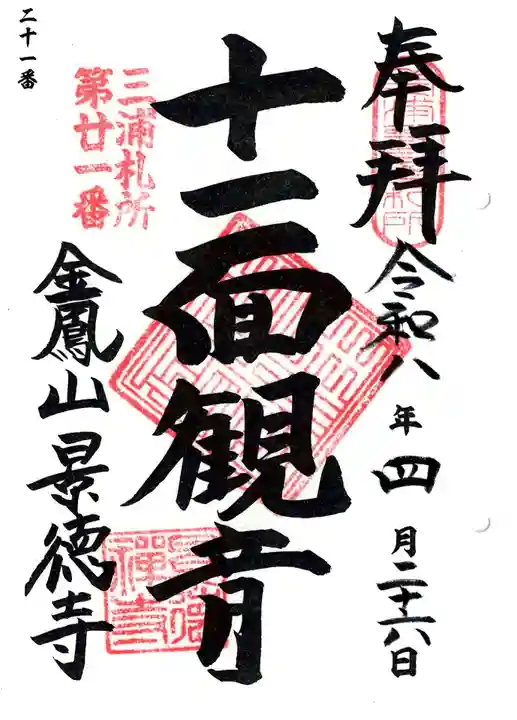 奉拝
令和八年四月二十六日
十一面観音
三浦札所
第廿一番
金鳳山景徳寺
二十一番